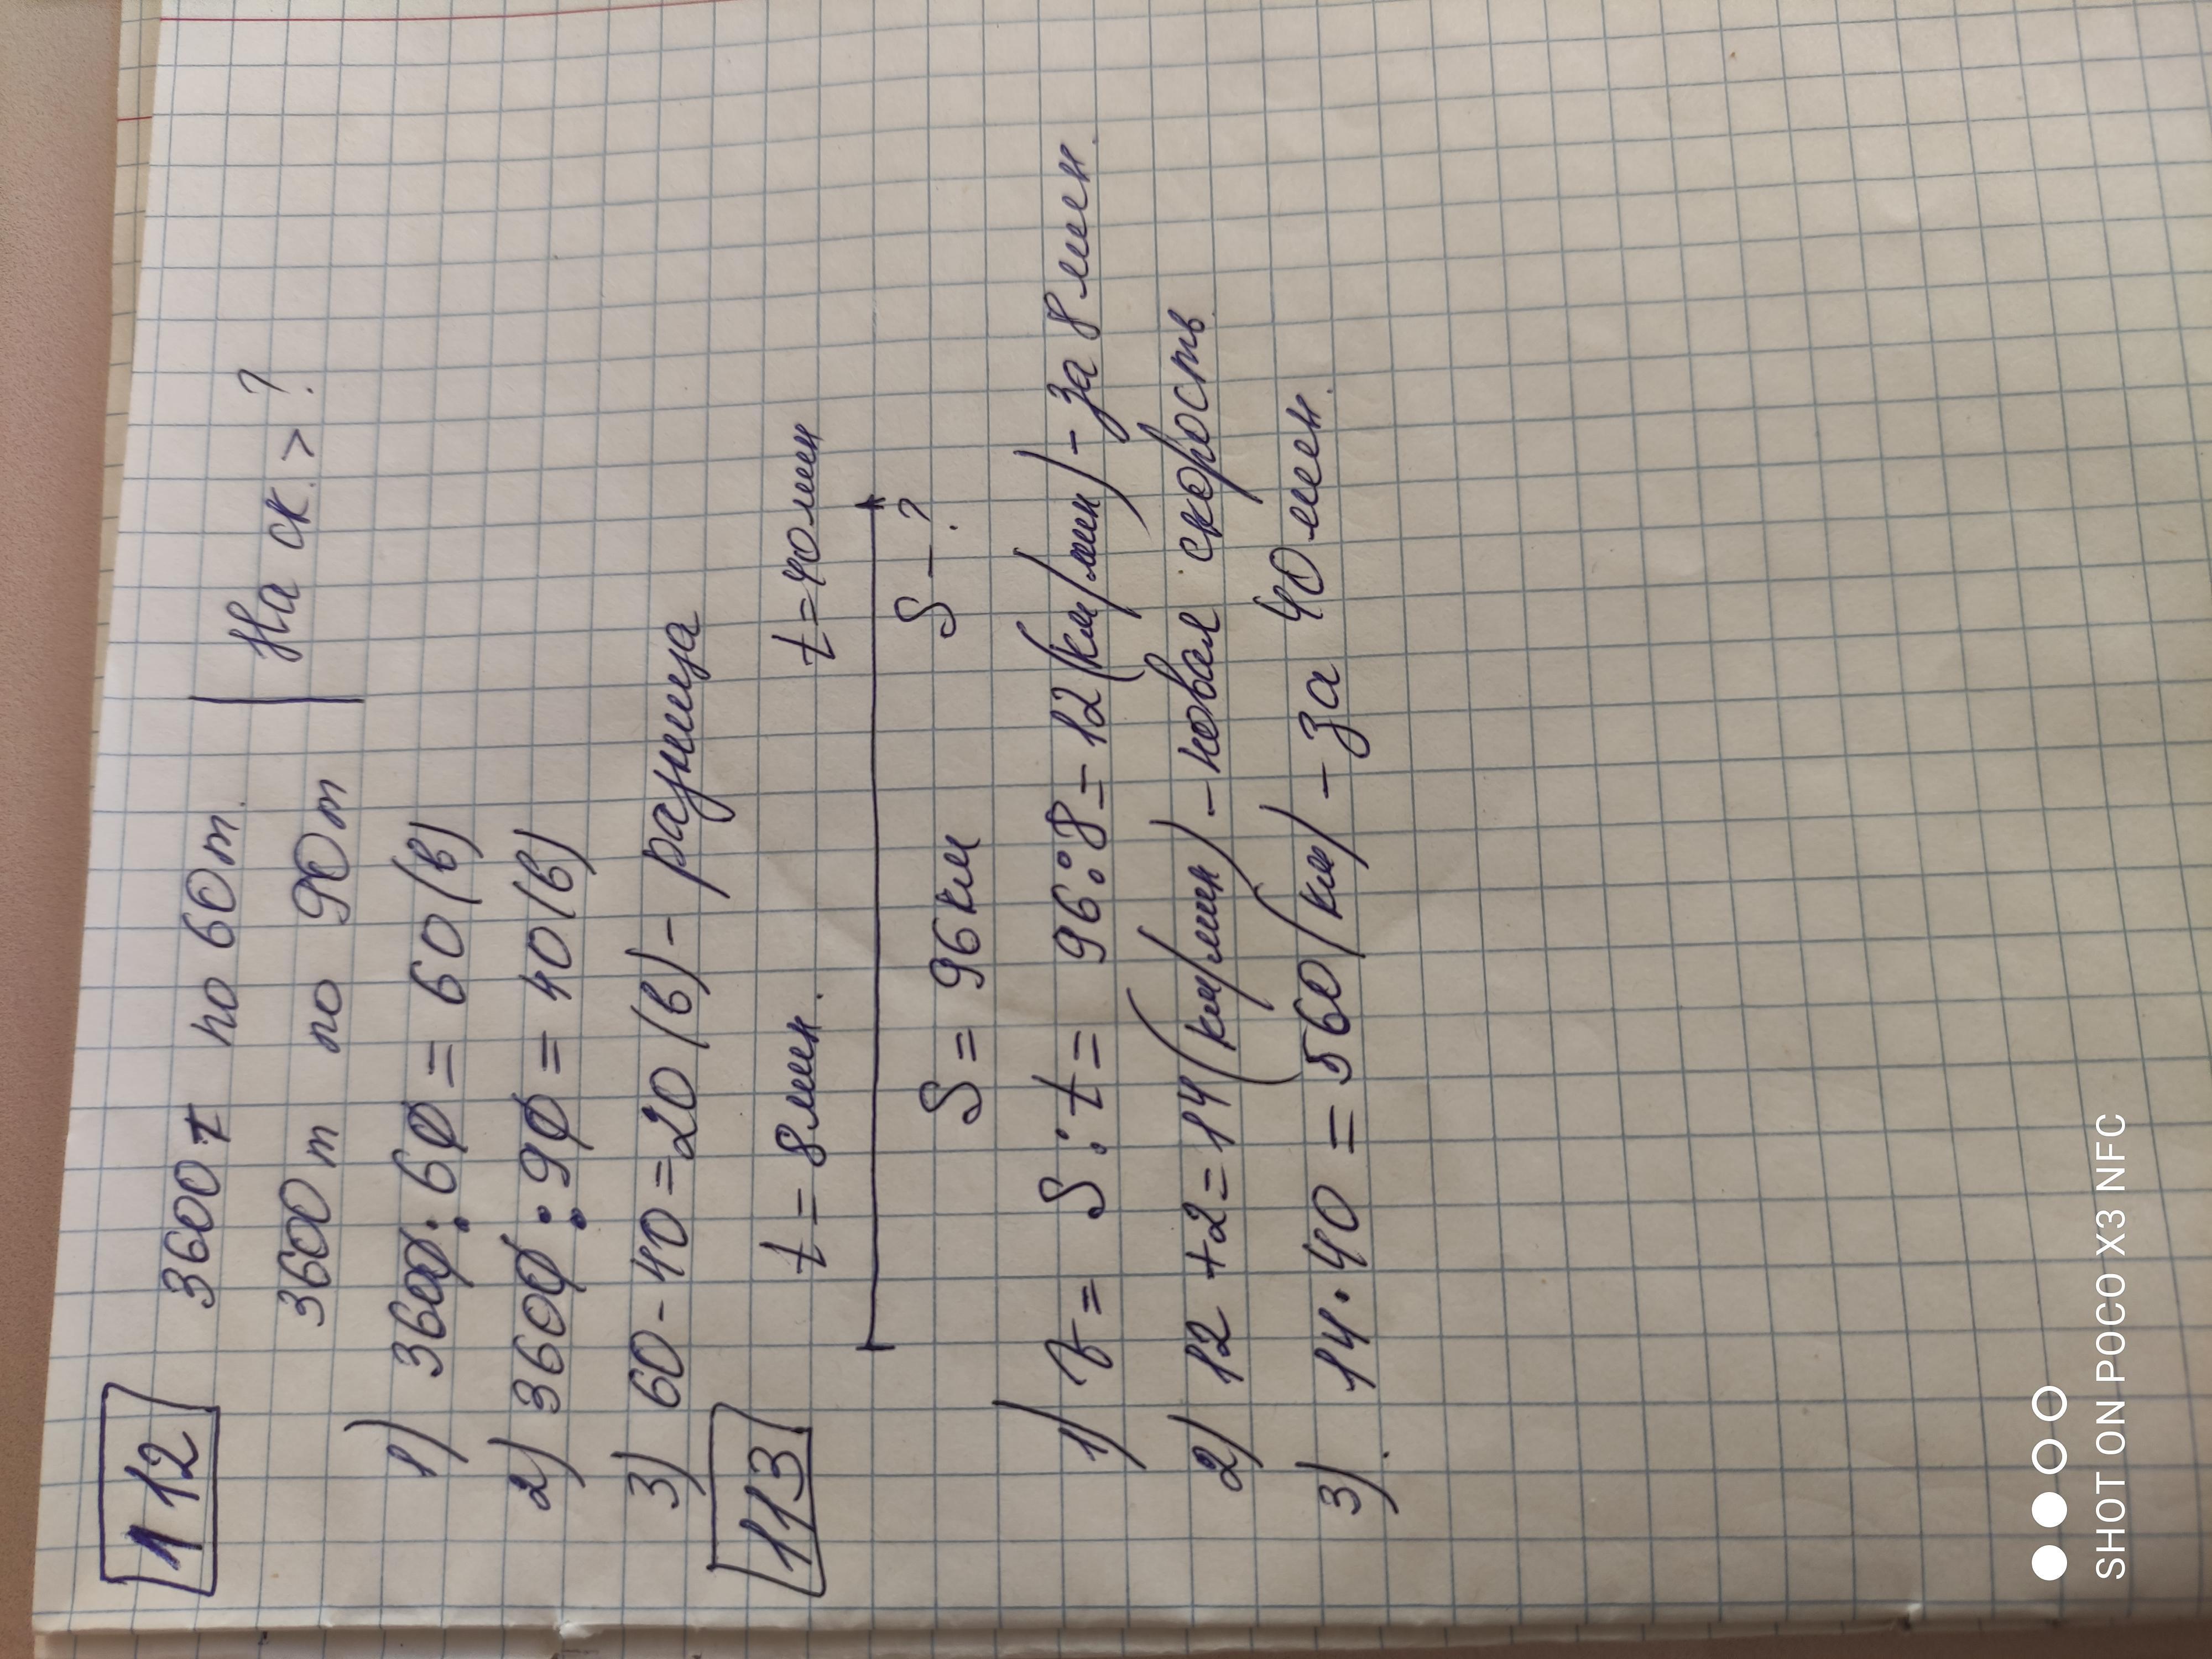 112
3600 т по 60 т.
3600 т по 90 т
На ск. > ?
1) 3600 : 60 = 60 (в)
2) 3600 : 90 = 40 (в)
3) 60 - 40 = 20 (в) - разница
113
t = 8 мин.
t = 40 мин
S = 96 км
S - ?
1) v = S : t = 96 : 8 = 12 (км/мин) - за 8 мин.
2) 12 + 2 = 14 (км/мин) - новая скорость
3) 14 · 40 = 560 (км) - за 40 мин.
SHOT ON POCO X3 NFC